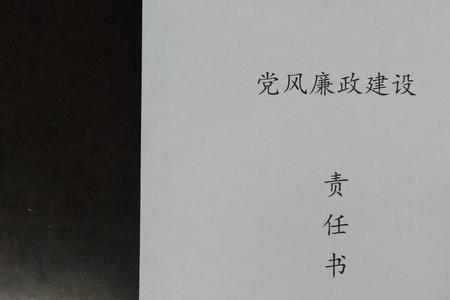 党风廉政建设
责
任
书